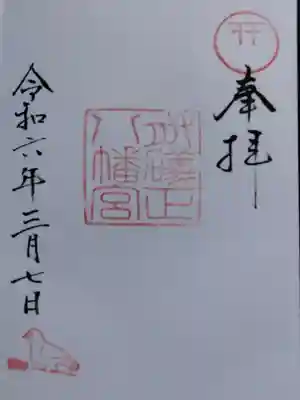 奉拝
八幡宮
令和六年三月七日